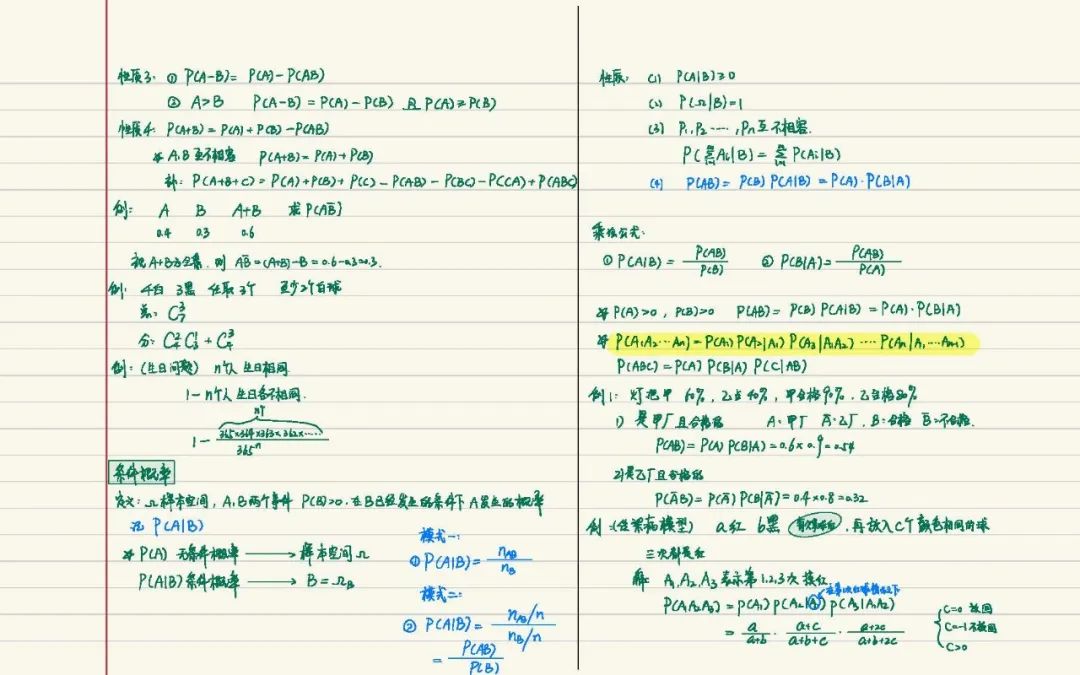 性质3: ① P(A-B)= P(A)-P(AB)
② A>B P(A-B)=P(A)-P(B) 且P(A)≥P(B)
性质4: P(A+B)=P(A)+P(B)-P(AB)
* A,B互不相容 P(A+B)=P(A)+P(B)
补: P(A+B+C)=P(A)+P(B)+P(C)-P(AB)-P(BC)-P(CA)+P(ABC)
例: A B A+B 求P(AB̄)
0.4 0.3 0.6
A+B为全集, 则 AB̄=(A+B)-B=0.6-0.3=0.3.
例: 4白 3黑 任取3个 至少2个白球
总: C₇³
分: C₄²C₃¹+C₄³
例: (生日问题) n个人 生日相同
1-n个人 生日各不相同.
n个
1- 365×364×363×362×…… / 365ⁿ
条件概率
定义: Ω样本空间, A,B两个事件 P(B)>0. 在B已经发生的条件下A发生的概率
记 P(A|B)
* P(A) 无条件概率 → 样本空间Ω
P(A|B) 条件概率 → B=Ω_B
模式一:
① P(A|B)= n_AB / n_B
模式二:
② P(A|B)= (n_AB/n) / (n_B/n)
= P(AB) / P(B)
性质: (1) P(A|B)≥0
(2) P(Ω|B)=1
(3) P₁,P₂……,Pn互不相容.
P(∑Ai|B)=∑P(Ai|B)
(4) P(AB)= P(B)P(A|B)=P(A)·P(B|A)
乘法公式:
① P(A|B)= P(AB) / P(B) ② P(B|A)= P(AB) / P(A)
* P(A)>0, P(B)>0 P(AB)= P(B)P(A|B)=P(A)·P(B|A)
* P(A₁A₂…An)=P(A₁)P(A₂|A₁)P(A₃|A₁A₂)……P(An|A₁…An-1)
P(ABC)=P(A)P(B|A)P(C|AB)
例1: 灯把甲60%, 乙占40%, 甲合格90%. 乙合格80%
1) 是甲厂且合格的 A:甲厂 Ā:乙厂, B:合格 B̄:不合格.
P(AB)=P(A)P(B|A)=0.6×0.9=0.54
2)是乙厂且合格的
P(ĀB)=P(Ā)P(B|Ā)=0.4×0.8=0.32
例:( 模型) a红 b黑 . 再放入C个颜色相同的球
三次都是红
解: A₁,A₂,A₃表示第1,2,3次摸红
P(A₁A₂A₃)=P(A₁)P(A₂|A₁)P(A₃|A₁A₂)
= a/(a+b) · (a+c)/(a+b+c) · (a+2c)/(a+b+2c)
C=0 放回
C=-1 不放回
C>0